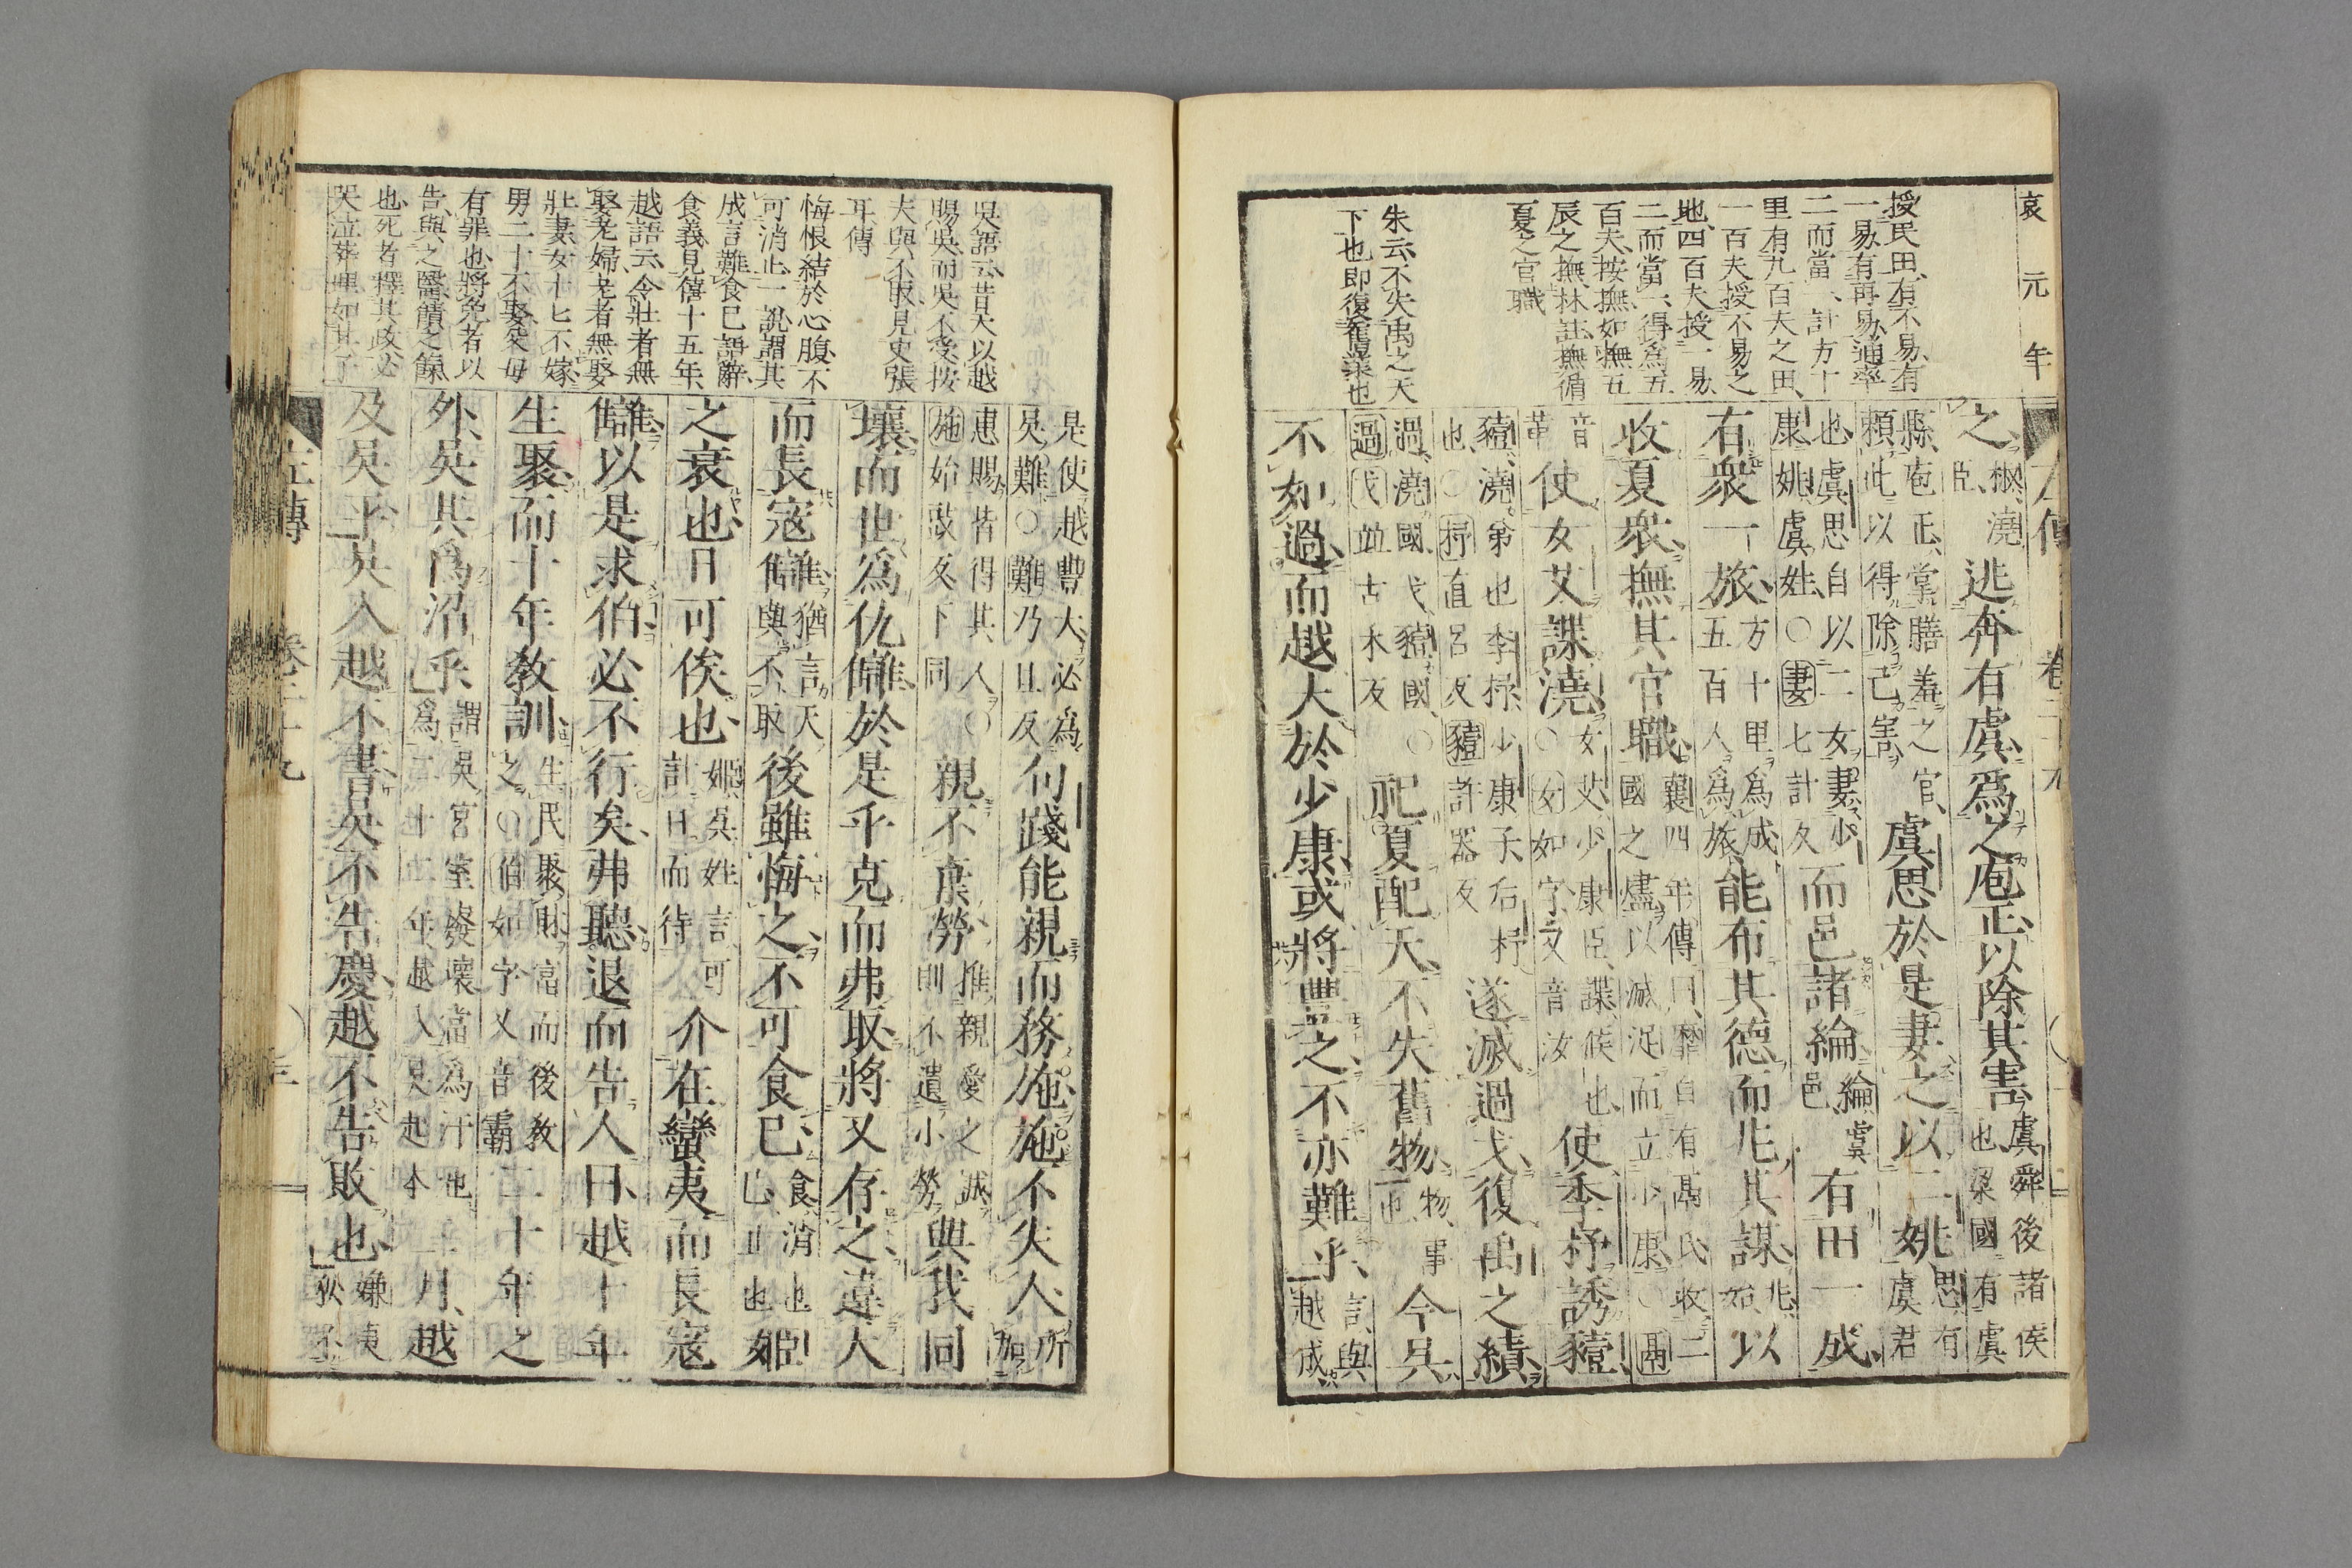 哀元年
授民田有不易有
一易有再易通率
二而當一計方十
里有九百夫之田
一百夫授不易之
地四百夫授一易
二而當一得爲五
百夫按撫如撫五
辰之撫林註撫循
夏之官職
朱云不失禹之天
下也即復舊業也
之椒澆臣逃奔有虞爲之庖正以除其害虞舜後諸侯也梁國有虞
縣庖正掌膳羞之官賴此以得除己害虞思於是妻之以二姚思有虞君
也虞思自以二女妻少康姚虞姓○妻七計反而邑諸綸綸虞邑有田一成
有衆一旅方十里爲成五百人爲旅能布其德而兆其謀兆始以
收夏衆撫其官職襄四年傳曰靡自有鬲氏收二國之燼以滅浞而立少康○鬲
音革使女艾諜澆女艾少康臣諜候也○女如字又音汝使季杼誘豷
豷澆弟也季杼少康子后杼也○杼直呂反豷許器反遂滅過戈復禹之績
過澆國戈豷國○過戈並古禾反祀夏配天不失舊物物事也今吳
不如過而越大於少康或將豐之不亦難乎言與越成
吳語云昔天以越
賜吳而吳不受按
天與不取見史張
耳傳
悔恨結於心腹不
可消止一說謂其
成言難食已語辭
食義見僖十五年
越語云令壯者無
娶老婦老者無娶
壯妻女十七不嫁
男二十不娶父母
有罪也將免者以
告與之醫饋之餼
也死者擇其政必
哭泣葬埋如其子
是使越豐大必爲吳難○難乃旦反句踐能親而務施施不失人所加
惠賜皆得其人○施始豉反下同親不棄勞推親愛之誠則不遺小勞與我同
壤而世爲仇讎於是乎克而弗取將又存之違天
而長寇讎猶言天與不取後雖悔之不可食已食消也已止也姬
之衰也日可俟也姬吳姓言可計日而待介在蠻夷而長寇
讎以是求伯必不行矣弗聽退而告人曰越十年
生聚而十年教訓生民聚財富而後教之○伯如字又音霸二十年之
外吳其爲沼乎謂吳宮室廢壞當爲汙池爲二十二年越入吳起本三月越
及吳平吳入越不書吳不告慶越不告敗也嫌夷狄不
左傳 卷二十九 三